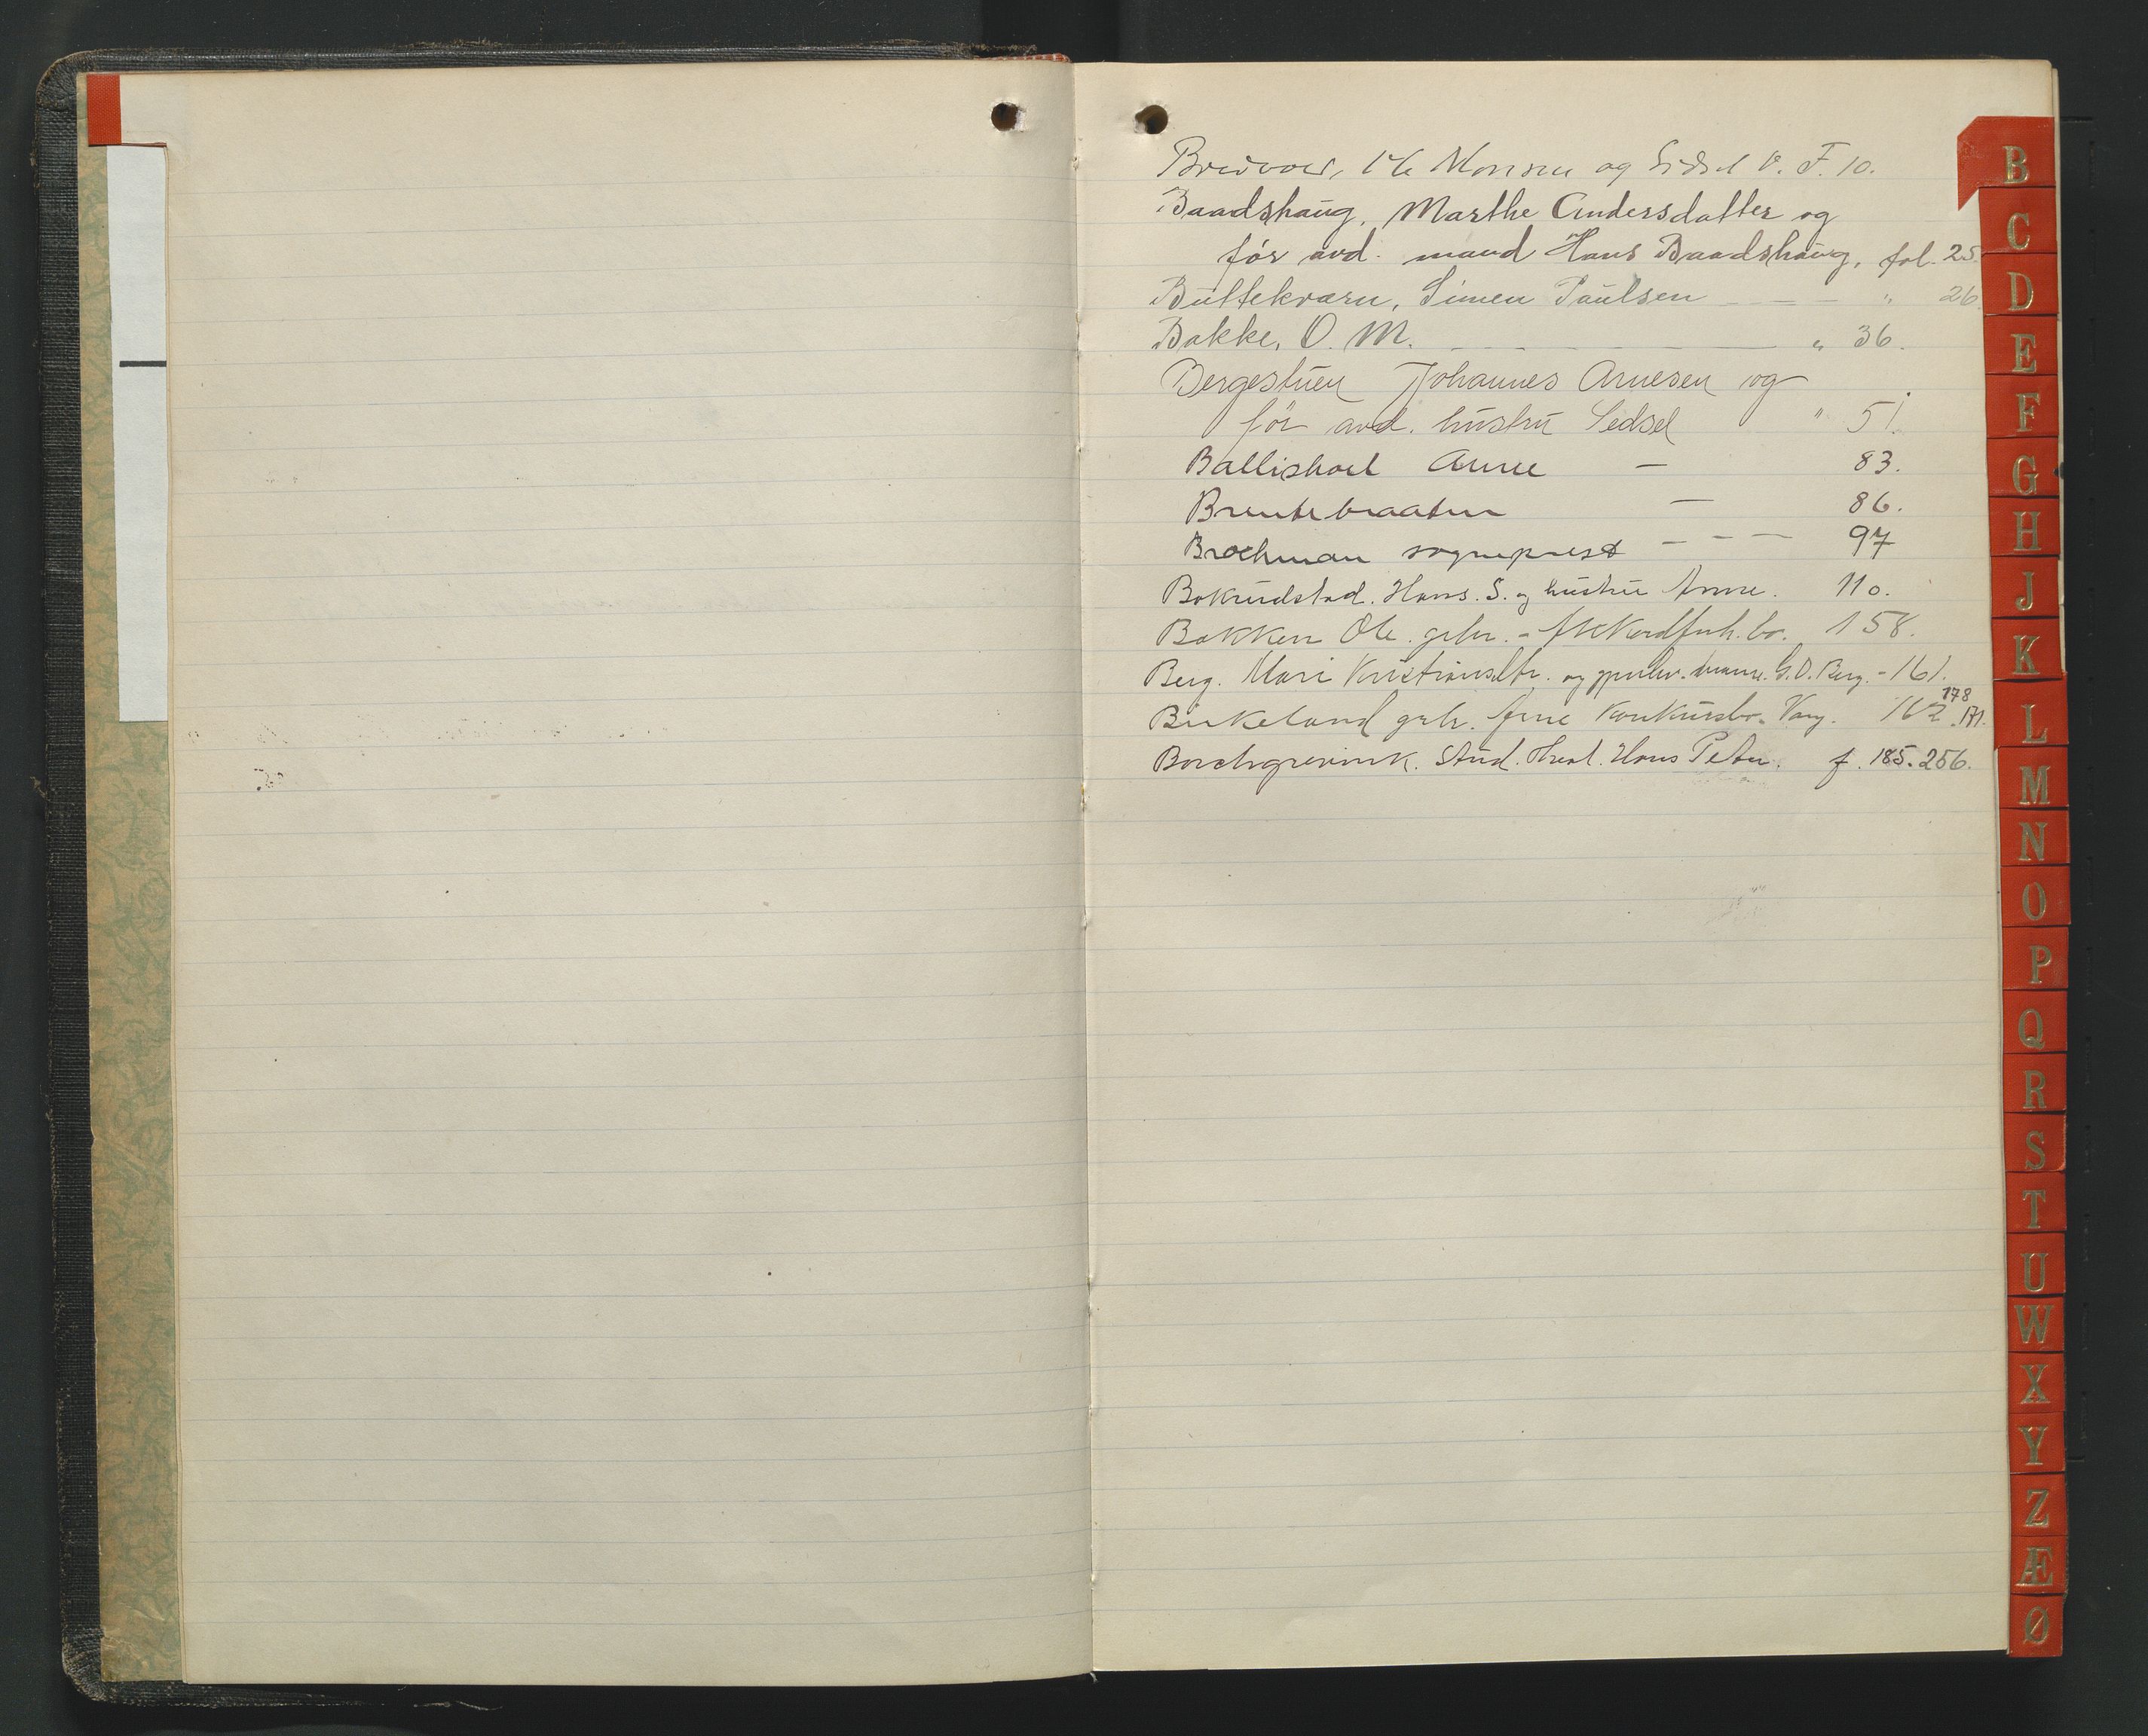 Monsen og F. 10.
Baadshaug, Marthe Andersdatter og
før avd. mand Hans Baadshaug, fol. 25.
Buttekværn, Simen Paulsen — — — " 26
Bakke, O. M. — — — — " 36.
Bergestuen Johannes Arnesen og
før avd. hustru Sedsel " 51.
Ballishoel Anne — 83.
Brentebraaten — 86.
Brochman sogneprest — — — 97
Bokundstad. Hans. S. og hustru Anne. 110.
Bakken Ole. grbr. - Akkordforh. bo. 158.
Berg. Mari Kristiansdtr. og G. O. Berg. - 161.
Birkeland grbr. Arne Konkursbo. Vang. 162. 171. 178
Borchgrevink. Stud. Theol. Hans Peter. f. 185. 256.
B
C
D
E
F
G
H
J
K
L
M
N
O
P
Q
R
S
T
U
W
X
Y
Z
Æ
Ø